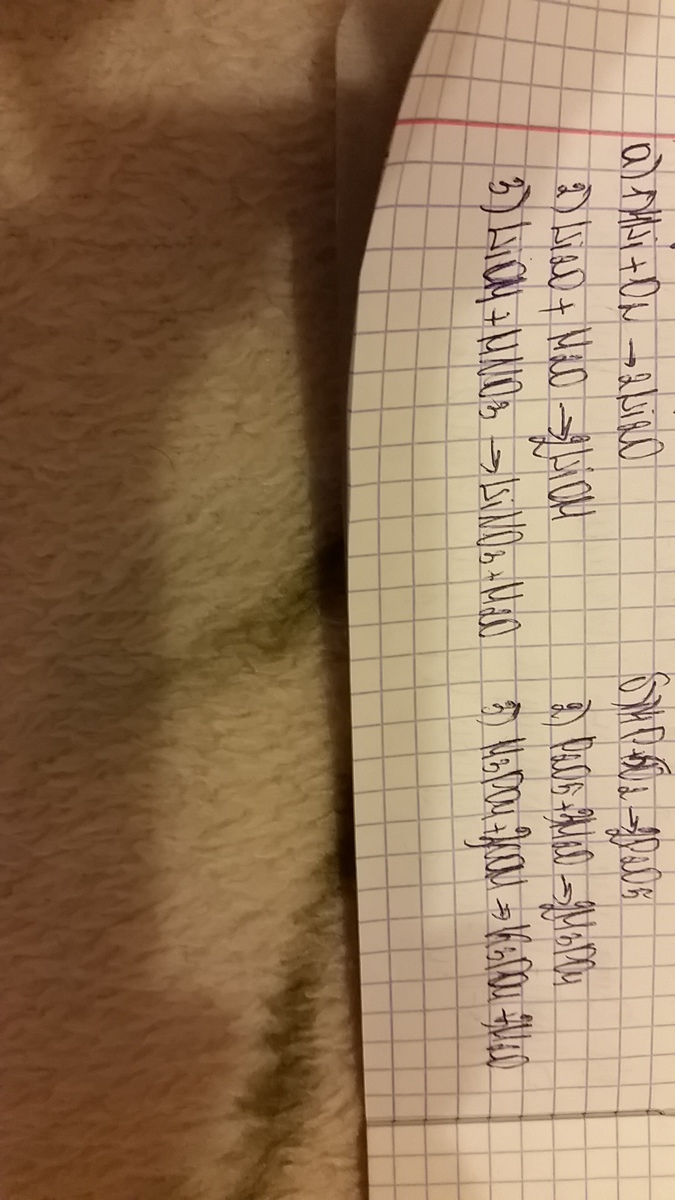 а) 1) 4Li + O2 → 2Li2O
2) Li2O + H2O → 2LiOH
3) LiOH + HNO3 → LiNO3 + H2O
б) 1) 4P + 5O2 → 2P2O5
2) P2O5 + 3H2O → 2H3PO4
3) H3PO4 + 3KOH → K3PO4 + 3H2O